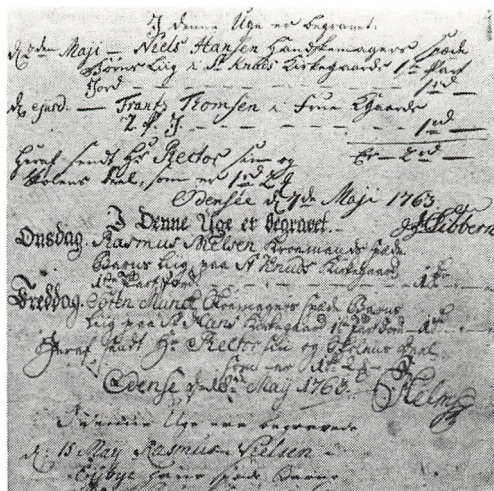 I denne Uge er begravet.
d. 2den Maji — Niels Hansen Handskemagers spæde
Børns Liig i St Knuds Kirkegaards 1te Part
Jord — 1rd —
d. ejusd. — Frantz Thomsen i Frue Kgaards
2 P. J. — 1rd —
Er — 2rd —
Heraf sendt Hr Rector sin og
Skolens Deel, som er 1rd 2
Odensee d. 7de Maji 1763.
I Denne Uge er begravet.
Onsdag. Rasmus Nielsen spæde
Barns Liig paa St Knuds Kirkegaard
1te Part Jord
Freddag. Søren Munck Skoemagers spæde Barns
Liig paa St Hans Kirkegaard 1te Part Jord
Heraf sendt Hr Rector sin og Skolens Deel
som er
Odense d. May 1763.
Helms
I denne Uge ere begravede
d. 15 May Rasmus Nielsen
hans spæde Barn